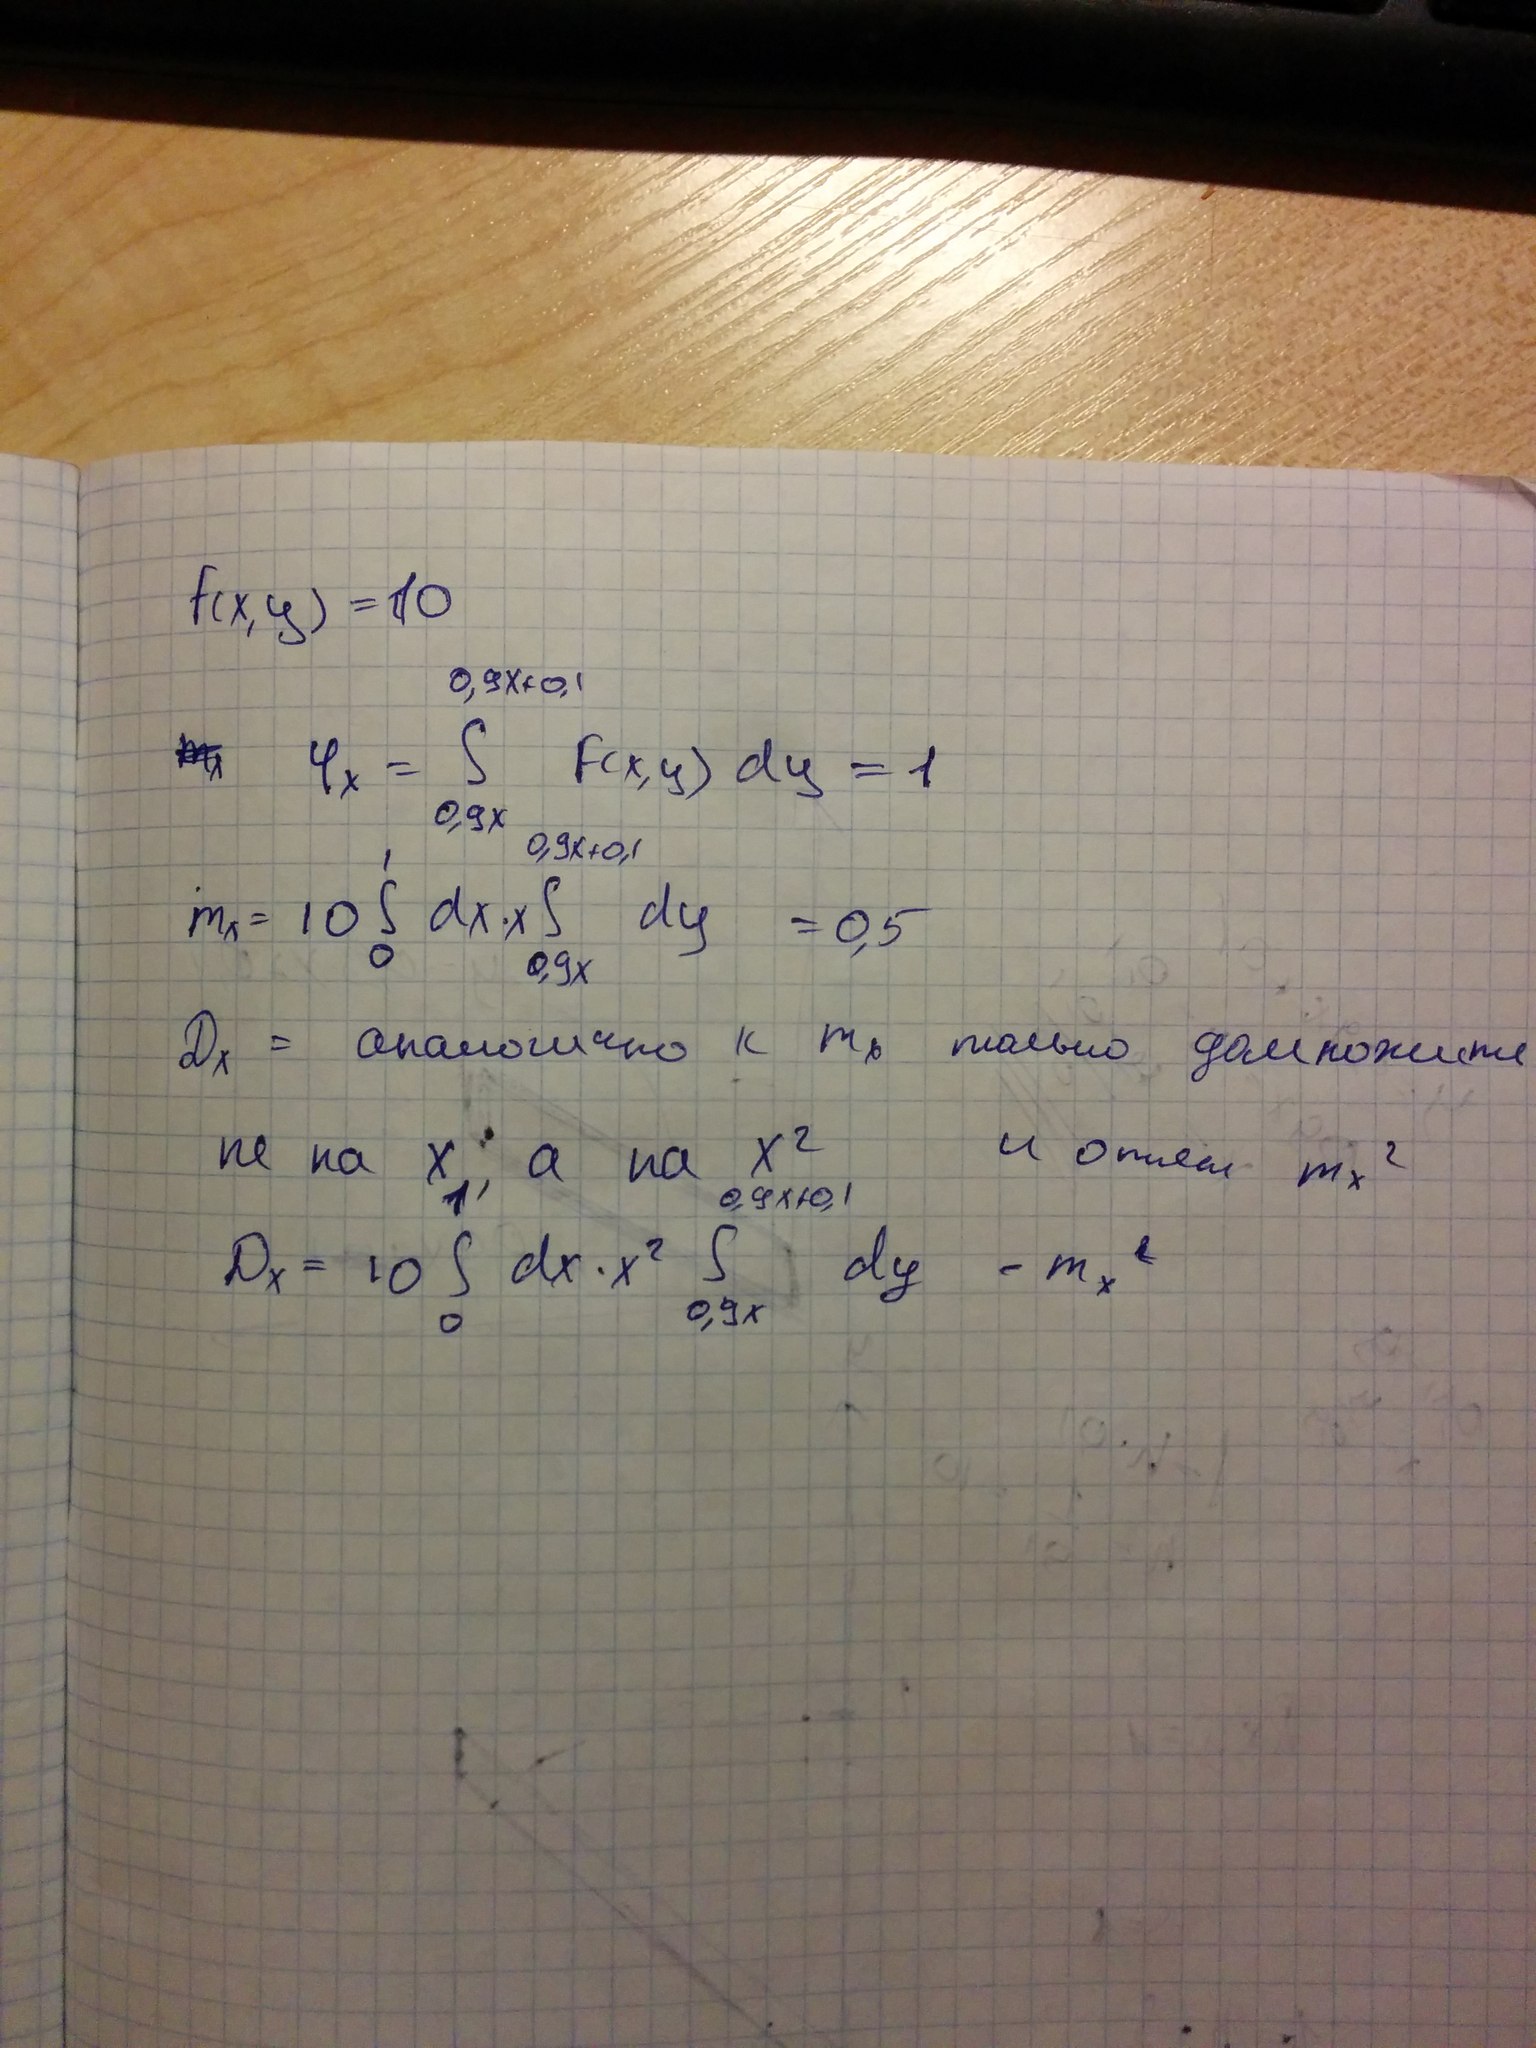 f(x,y) = 10
φx = ∫_{0,9x}^{0,9x+0,1} f(x,y) dy = 1
mx = 10 ∫_{0}^{1} dx·x ∫_{0,9x}^{0,9x+0,1} dy = 0,5
Dx = аналогично к mx только домножите
не на x, а на x² и отнем mx²
Dx = 10 ∫_{0}^{1} dx·x² ∫_{0,9x}^{0,9x+0,1} dy - mx²